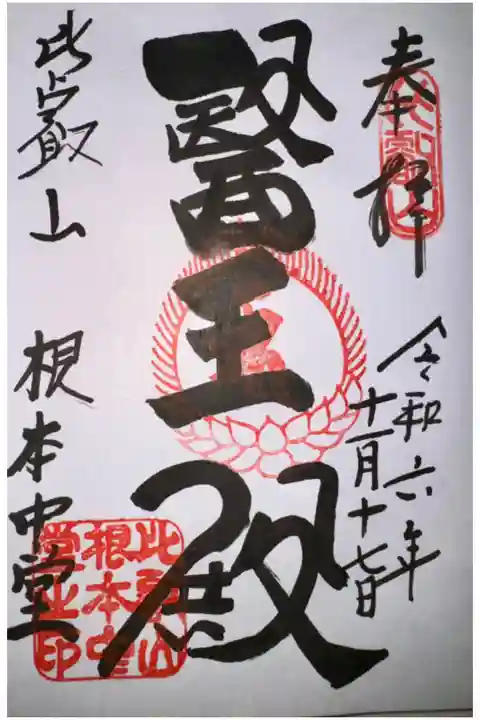 奉拝
令和六年
十一月十七日
醫王殿
比叡山
根本中堂
比叡山
比叡山
根本中堂
堂之印